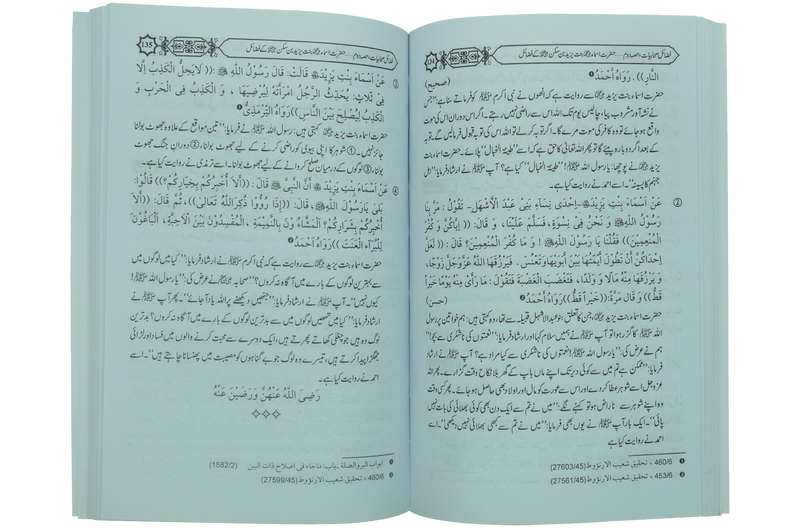 فضائل صحابیات، حصہ دوم ..... حضرت اسماء بنت یزید بن سکن کے فضائل
134
النَّارِ))، رَوَاهُ اَحْمَدُ❶ (صحیح)
حضرت اسماء بنت یزید سے روایت ہے کہ انھوں نے نبی اکرم ﷺ کو فرماتے سنا ہے: "جس
نے نشہ آور مشروب پیا، چالیس یوم تک اللہ اس سے راضی نہیں رہتے۔ اگر اس دوران اس کی موت
واقع ہو جائے تو وہ کافر کی موت مرے گا۔ اگر توبہ کرے تو اللہ اس کی توبہ قبول فرمالیں گے۔ توبہ
کے بعد اگر دوبارہ پیئے گا تو پھر اللہ تعالیٰ کا حق ہے کہ اسے "طینۃ الخبال" پلائے۔ حضرت اسماء بنت
یزید نے پوچھا: یا رسول اللہ ﷺ! "طینۃ الخبال" کیا ہے؟ آپ ﷺ نے ارشاد فرمایا: "اہل
جہنم کا پسینہ"۔ اسے احمد نے روایت کیا ہے۔
② عَنْ اَسْمَاءَ بِنْتِ يَزِيْدَ۔ اِحْدٰى نِسَاءِ بَنِى عَبْدِ الْاَشْهَلِ۔ تَقُوْلُ: مَرَّ بِنَا
رَسُوْلُ اللهِ ﷺ وَ نَحْنُ فِىْ نِسْوَةٍ، فَسَلَّمَ عَلَيْنَا، وَ قَالَ: ((اِيَّاكُنَّ وَ كُفْرَ
الْمُنْعِمِيْنَ)) فَقُلْنَا يَا رَسُوْلَ اللهِ ﷺ! وَ مَا كُفْرُ الْمُنْعِمِيْنَ؟ قَالَ: ((لَعَلَّ
اِحْدَاكُنَّ اَنْ تَطُوْلَ اَيْمَتُهَا بَيْنَ اَبَوَيْهَا وَ تَعْنُسَ، فَيَرْزُقَهَا اللهُ عَزَّوَجَلَّ زَوْجًا،
وَ يَرْزُقَهَا مِنْهُ مَالًا وَ وَلَدًا، فَتَغْضَبَ الْغَضْبَةَ فَتَقُوْلَ: مَا رَاٰى مِنْهُ يَوْمًا خَيْرًا
قَطُّ)) وَ قَالَ مَرَّةً: ((خَيْرًا قَطُّ)) رَوَاهُ اَحْمَدُ❷ (حسن)
حضرت اسماء بنت یزید، جن کا تعلق بنو عبد الاشہل قبیلہ سے تھا، وہ کہتی ہیں: ہم خواتین پر رسول
اللہ ﷺ کا گزر ہوا تو آپ ﷺ نے ہمیں سلام کہا اور ارشاد فرمایا: "نعمتوں کی ناشکری سے بچنا"
ہم نے عرض کی: "یا رسول اللہ ﷺ! نعمتوں کی ناشکری سے کیا مراد ہے؟" آپ ﷺ نے ارشاد
فرمایا: "ممکن ہے تم میں سے کوئی دیر تک اپنے ماں باپ کے گھر بلا نکاح وقت گزارے۔ پھر اللہ
عزوجل اسے شوہر عطا کردے اور اس سے عورت کو مال اور اولاد بھی حاصل ہو جائے۔ پھر کسی وقت
وہ اپنے شوہر سے ناراض ہو تو کہنے لگے: "میں نے تم سے ایک دن بھی کوئی بھلائی کی بات نہیں
پائی"۔ ایک بار آپ ﷺ نے یوں بھی فرمایا: "میں نے تم سے کبھی بھلائی نہیں دیکھی"۔ اسے
احمد نے روایت کیا ہے
❶ 460/6 ، تحقیق شعیب الارنؤوط (27603/45)
❷ 453/6 ، تحقیق شعیب الارنؤوط (27561/45)
فضائل صحابیات، حصہ دوم ..... حضرت اسماء بنت یزید بن سکن کے فضائل
135
③ عَنْ اَسْمَاءَ بِنْتِ يَزِيْدَ قَالَتْ: قَالَ رَسُوْلُ اللهِ ﷺ: ((لَا يَحِلُّ الْكَذِبُ اِلَّا
فِىْ ثَلَاثٍ: يُحَدِّثُ الرَّجُلُ امْرَاَتَهُ لِيُرْضِيَهَا، وَ الْكَذِبُ فِى الْحَرْبِ وَ
الْكَذِبُ لِيُصْلِحَ بَيْنَ النَّاسِ)) رَوَاهُ التِّرْمَذِىُّ❶
حضرت اسماء بنت یزید کہتی ہیں: رسول اللہ ﷺ نے فرمایا: "تین مواقع کے علاوہ جھوٹ بولنا
جائز نہیں۔ ① شوہر کا اپنی بیوی کو راضی کرنے کے لیے جھوٹ بولنا، ② دوران جنگ جھوٹ
بولنا، ③ لوگوں کے درمیان صلح کروانے کے لیے جھوٹ بولنا۔ اسے ترمذی نے روایت کیا ہے۔
④ عَنْ اَسْمَاءَ بِنْتِ يَزِيْدَ اَنَّ النَّبِىَّ ﷺ قَالَ: ((اَلَا اُخْبِرُكُمْ بِخِيَارِكُمْ؟)) قَالُوْا:
بَلٰى يَا رَسُوْلَ اللهِ ﷺ، قَالَ: ((اِذَا رُؤُوْا ذُكِرَ اللهُ تَعَالٰى))، ثُمَّ قَالَ: ((اَلَا
اُخْبِرُكُمْ بِشِرَارِكُمْ؟ الْمَشَّاءُوْنَ بِالنَّمِيْمَةِ، الْمُفْسِدُوْنَ بَيْنَ الْاَحِبَّةِ، الْبَاغُوْنَ
لِلْبُرَآءِ الْعَنَتَ)) رَوَاهُ اَحْمَدُ❷
حضرت اسماء بنت یزید سے روایت ہے کہ نبی اکرم ﷺ نے ارشاد فرمایا: "کیا میں لوگوں میں
سے بہترین لوگوں کے بارے میں آگاہ نہ کروں؟" صحابہ نے عرض کی: "یا رسول اللہ ﷺ!
کیوں نہیں"۔ آپ ﷺ نے ارشاد فرمایا: "جنھیں دیکھنے پر اللہ یاد آ جائے"۔ پھر آپ ﷺ نے
ارشاد فرمایا: "کیا میں تمھیں لوگوں میں سے بدترین لوگوں کے بارے میں آگاہ نہ کروں؟ بدترین
لوگ وہ ہیں جو چغلی کھاتے پھرتے ہیں، ایک دوسرے سے محبت کرنے والوں میں فساد اور لڑائی
جھگڑا پیدا کرتے ہیں، تیسرے وہ لوگ جو بے گناہوں کو مصیبت میں پھنسانا چاہتے ہیں"۔ اسے
احمد نے روایت کیا ہے۔
رَضِىَ اللهُ عَنْهُنَّ وَ رَضَيْنَ عَنْهُ
❶ ابواب البر والصلة ، باب: ماجاء فى اصلاح ذات البين (1582/2)
❷ 460/6 ، تحقیق شعیب الارنؤوط (27599/45)